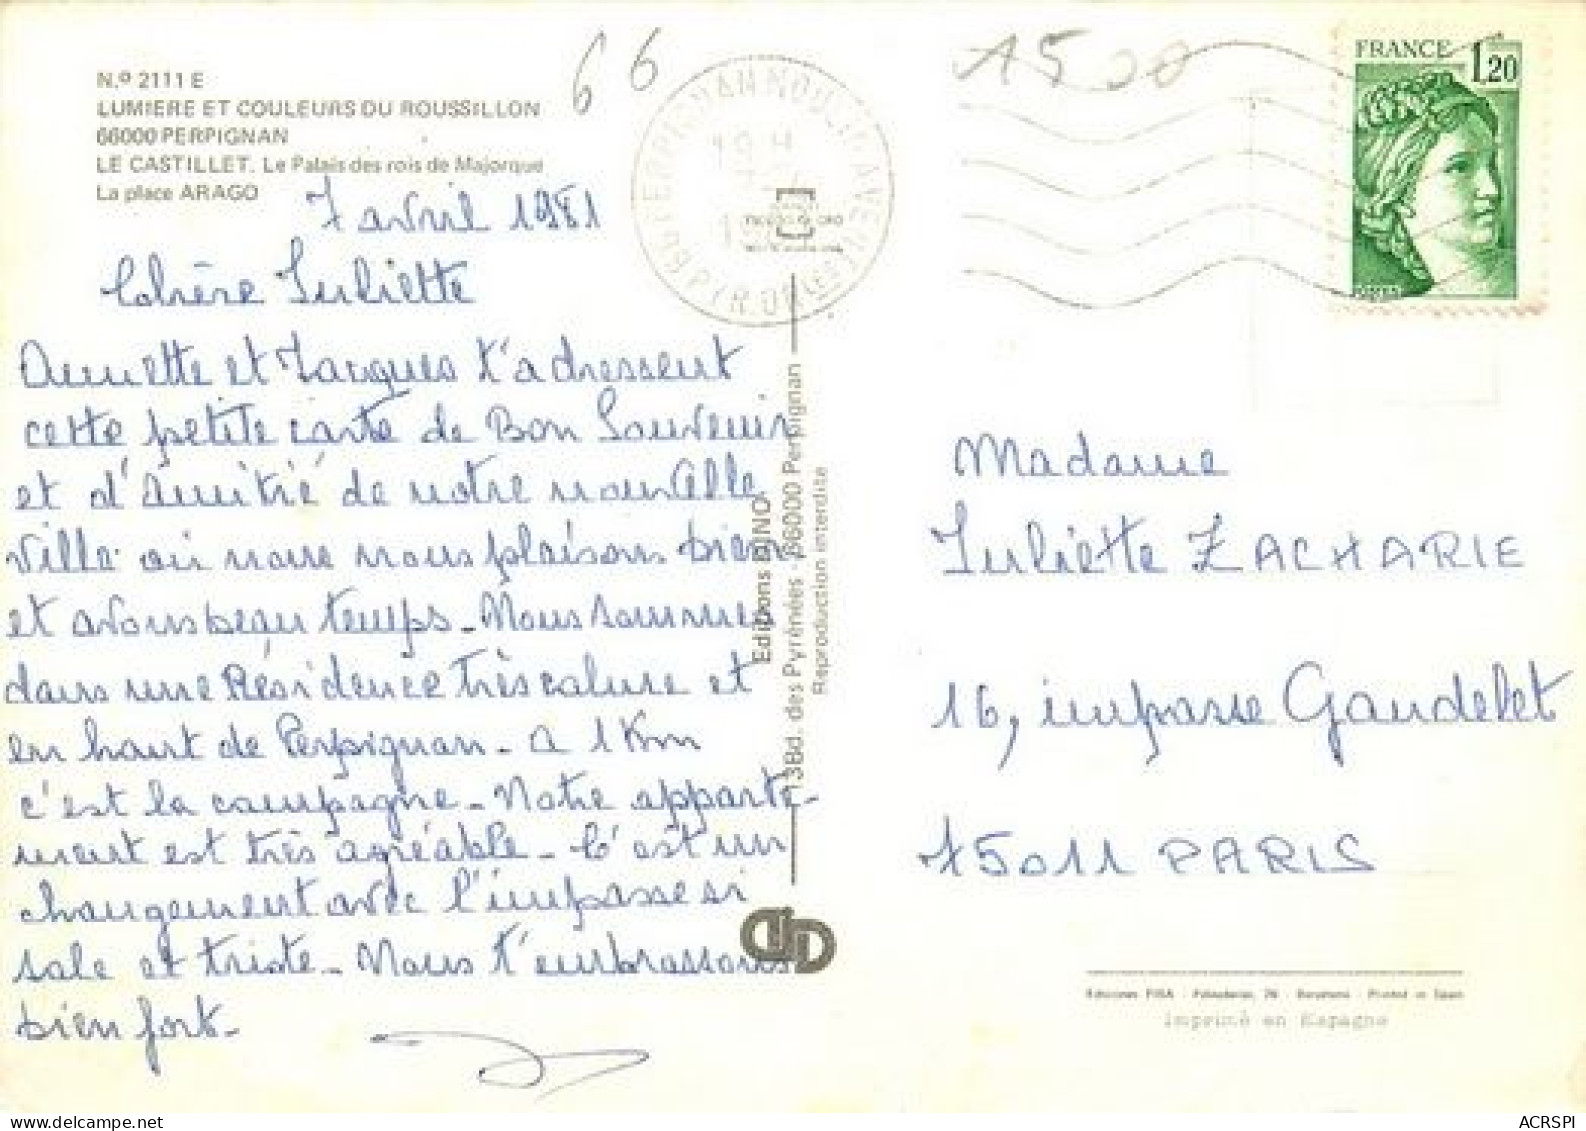 N.º 2111 E
LUMIERE ET COULEURS DU ROUSSILLON
66000 PERPIGNAN
LE CASTILLET. Le Palais des rois de Majorque
La place ARAGO
66
1500
FRANCE 1,20
7 avril 1981
Chère Juliette
Annette et Jacques t'adressent
cette petite carte de Bon Souvenir
et d'amitié de notre nouvelle
Ville où nous nous plaisons bien
et avons beau temps - Nous sommes
dans une Résidence très calme et
en haut de Perpignan - a 1 Km
c'est la campagne - Notre apparte-
ment est très agréable - C'est un
changement avec l'impasse si
sale et triste - Nous t'embrassons
bien fort -
Editions DINO
13 Bd. des Pyrénées - 66000 Perpignan
Reproduction interdite
Madame
Juliette ZACHARIE
16, impasse Gaudelet
75011 PARIS
Ediciones FISA - Palaudarias, 26 - Barcelona - Printed in Spain
Imprimé en Espagne
ACRSPI